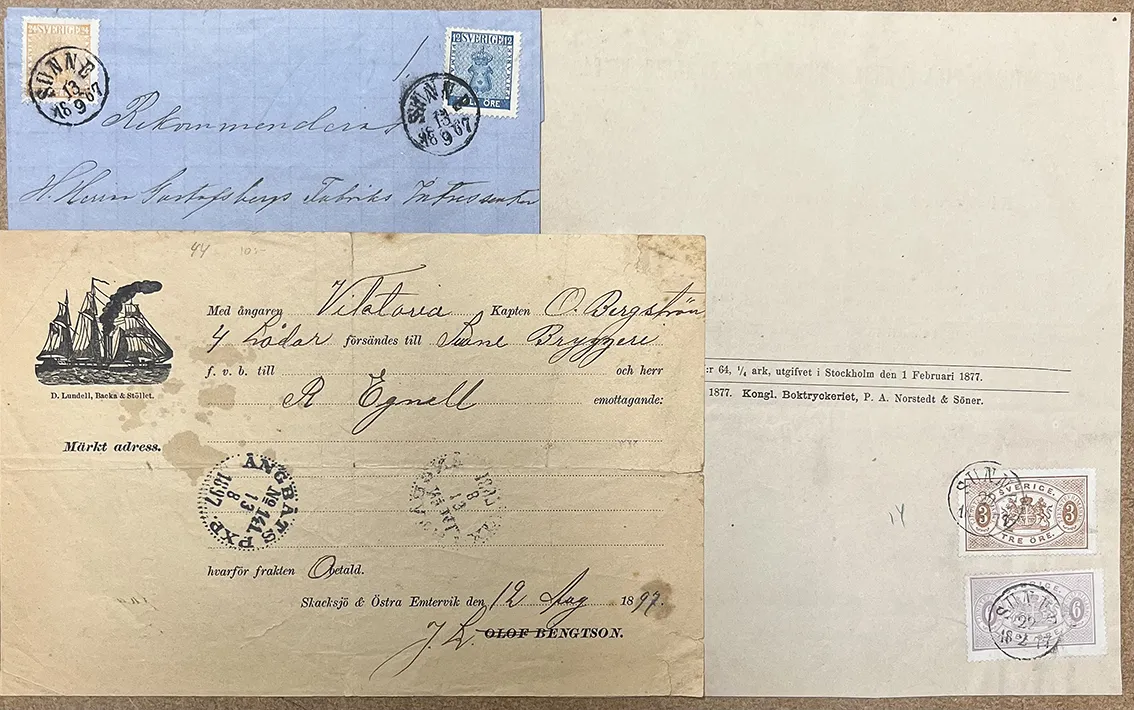 24 SVERIGE 24
SUNNE
13
18 9 67
12 SVERIGE 12
ÖRE
SUNNE
13
18 9 67
Rekommenderas
H. Herrn Gustafsbergs Fabriks Intressenter
44 10:-
Med ångaren Viktoria Kapten O. Bergström
4 Lådar försändes till Sunne Bryggeri
f. v. b. till och herr
R Egnell emottagande:
D. Lundell, Backa & Stöllet.
Märkt adress.
ÅNGBÅTS PXP.
No 141.
13
8
1897
hvarför frakten Obetald.
Skacksjö & Östra Emtervik den 12 Aug 1897.
J. L. OLOF BENGTSON.
:r 64, 1/4 ark, utgifvet i Stockholm den 1 Februari 1877.
1877. Kongl. Boktryckeriet, P. A. Norstedt & Söner.
SUNNE
22
18 2 77
SVERIGE.
3 3
TRE ÖRE.
SVERIGE.
6 6
SUNNE
22
18 2 77